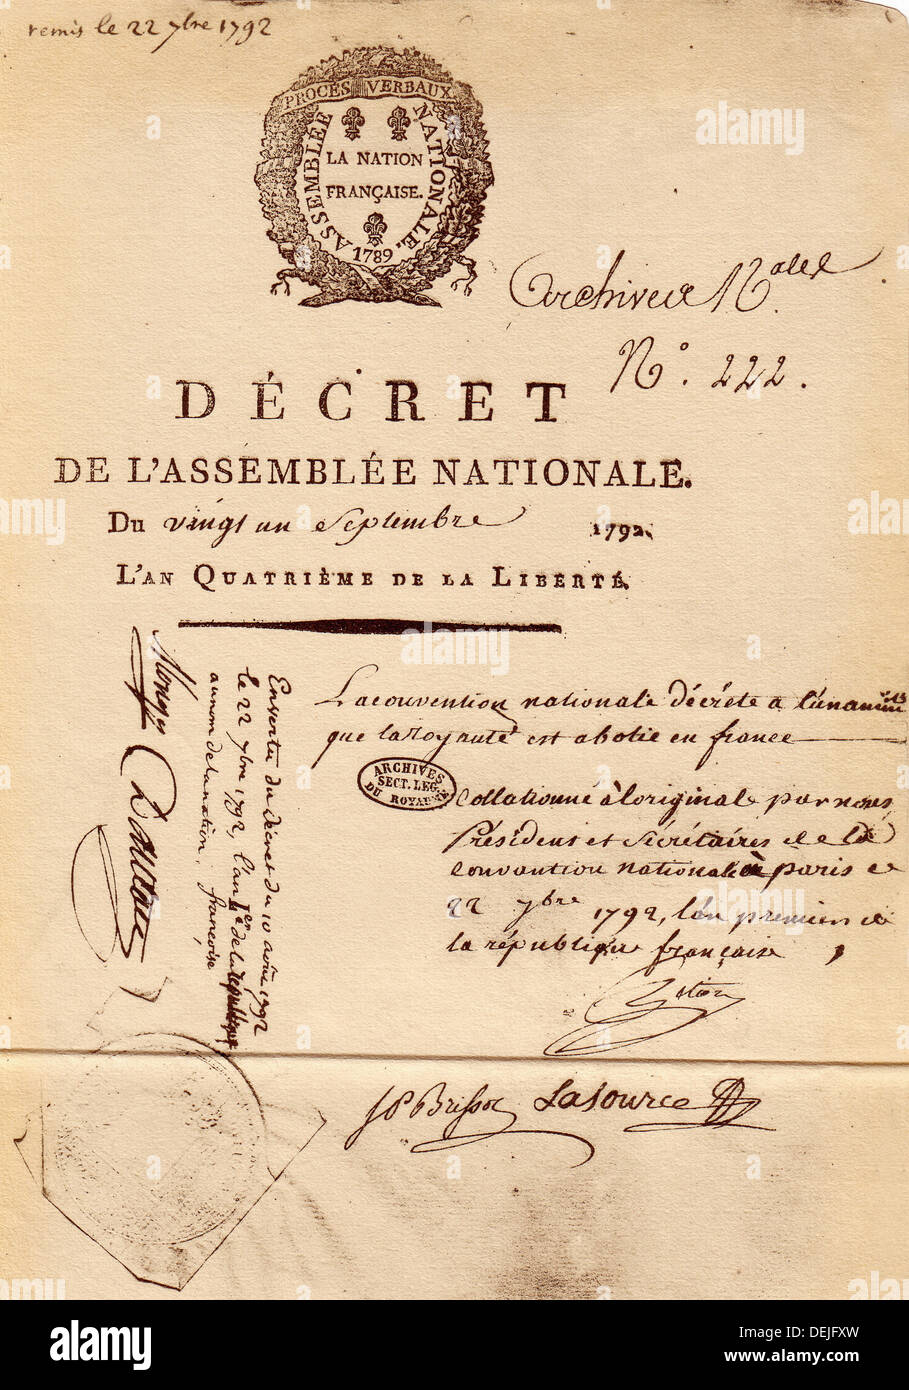 remis le 22 7bre 1792
PROCÈS VERBAUX
ASSEMBLÉE NATIONALE.
LA NATION
FRANÇAISE.
1789
Archives Nales
N° 222.
DÉCRET
DE L'ASSEMBLÉE NATIONALE.
Du vingt un Septembre 1792.
L'AN QUATRIÈME DE LA LIBERTÉ.
La convention nationale décrète a l'unanimité
que la royauté est abolie en france
ARCHIVES
SECT. LEG.
DU ROYAUME
Collationné à l'original par nous
Président et Sécrétaires de la
Convention nationale à paris ce
22 7bre 1792, l'an premier de
la république française,
Petion
JP Brissot Lasource
En vertu du décret du 10 août 1792
le 22 7bre 1792, l'an Ier de la république
au nom de la nation, françoise
Monge Danton
alamy
alamy stock photo
DEJFXW
www.alamy.com